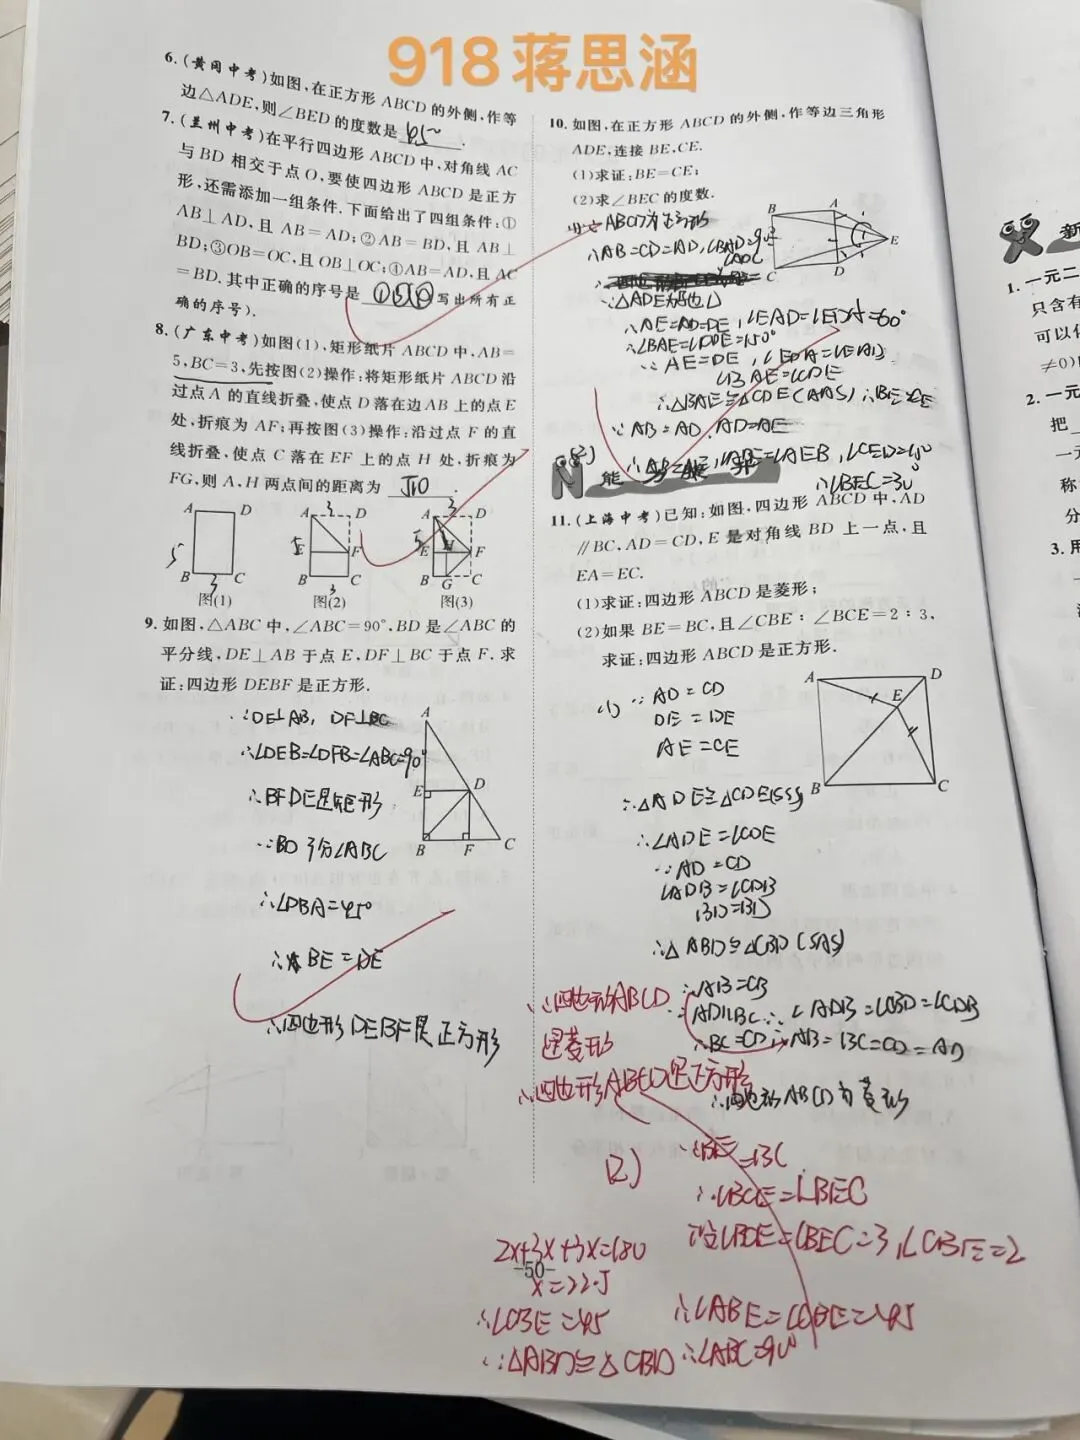 918蒋思涵
6.(黄冈中考)如图,在正方形ABCD的外侧,作等
边△ADE,则∠BED的度数是 45° .
7.(兰州中考)在平行四边形ABCD中,对角线AC
与BD相交于点O,要使四边形ABCD是正方
形,还需添加一组条件.下面给出了四组条件:①
AB⊥AD,且AB=AD;②AB=BD,且AB⊥
BD;③OB=OC,且OB⊥OC;④AB=AD,且AC
=BD.其中正确的序号是 ①③④ 写出所有正
确的序号).
8.(广东中考)如图(1),矩形纸片ABCD中,AB=
5,BC=3,先按图(2)操作:将矩形纸片ABCD沿
过点A的直线折叠,使点D落在边AB上的点E
处,折痕为AF;再按图(3)操作:沿过点F的直
线折叠,使点C落在EF上的点H处,折痕为
FG,则A、H两点间的距离为 √10 .
A D A 3 D A 3 D
5 5 E F 5 E H F
B 3 C B 3 C B G C
图(1) 图(2) 图(3)
9.如图,△ABC中,∠ABC=90°,BD是∠ABC的
平分线,DE⊥AB于点E,DF⊥BC于点F.求
证:四边形DEBF是正方形.
∵DE⊥AB, DF⊥BC
∴∠DEB=∠DFB=∠ABC=90°
∴BFDE是矩形
∵BD平分∠ABC
∴∠DBA=45°
∴BE=DE
∴四边形DEBF是正方形
A
E D
B F C
10.如图,在正方形ABCD的外侧,作等边三角形
ADE,连接BE,CE.
(1)求证:BE=CE;
(2)求∠BEC的度数.
B A
E
C D
(1)∵ABCD为正方形
∴AB=CD=AD,∠BAD=90°
∠ADC
∵△ADE为等边△
∴AE=AD=DE,∠EAD=∠EDA=60°
∴∠BAE=∠CDE=150°
∵AE=DE,∠EDA=∠EAD
∠BAE=∠CDE
∴△BAE≌△CDE(AAS)∴BE=CE
∵AB=AD,AD=AE
(2)∴AB=AE,∠ABE=∠AEB,∠CED=15°
∴∠BEC=30°
N 能
11.(上海中考)已知:如图,四边形ABCD中,AD
∥BC,AD=CD,E是对角线BD上一点,且
EA=EC.
(1)求证:四边形ABCD是菱形;
(2)如果BE=BC,且∠CBE∶∠BCE=2∶3,
求证:四边形ABCD是正方形.
A D
E
B C
(1)∵AD=CD
DE=DE
AE=CE
∴△ADE≌△CDE(SSS)
∴∠ADE=∠CDE
∵AD=CD
∠ADB=∠CDB
BD=BD
∴△ABD≌△CBD(SAS)
∴AB=CB
∵AD∥BC∴∠ADB=∠CBD=∠CDB
∴BC=CD∴AB=BC=CD=AD
∴四边形ABCD为菱形
∴四边形ABCD
是菱形
∴四边形ABCD是正方形
(2) ∵BE=BC
∴∠BCE=∠BEC
设∠BCE=∠BEC=3,∠CBE=2
2x+3x+3x=180
x=22.5
∴∠CBE=45
∵△ABD≌△CBD
∴∠ABE=∠CBE=45
∴∠ABC=90°
-50-
新
1.一元二
只含有
可以化
≠0)
2.一元
把
一元
称
分
3.用